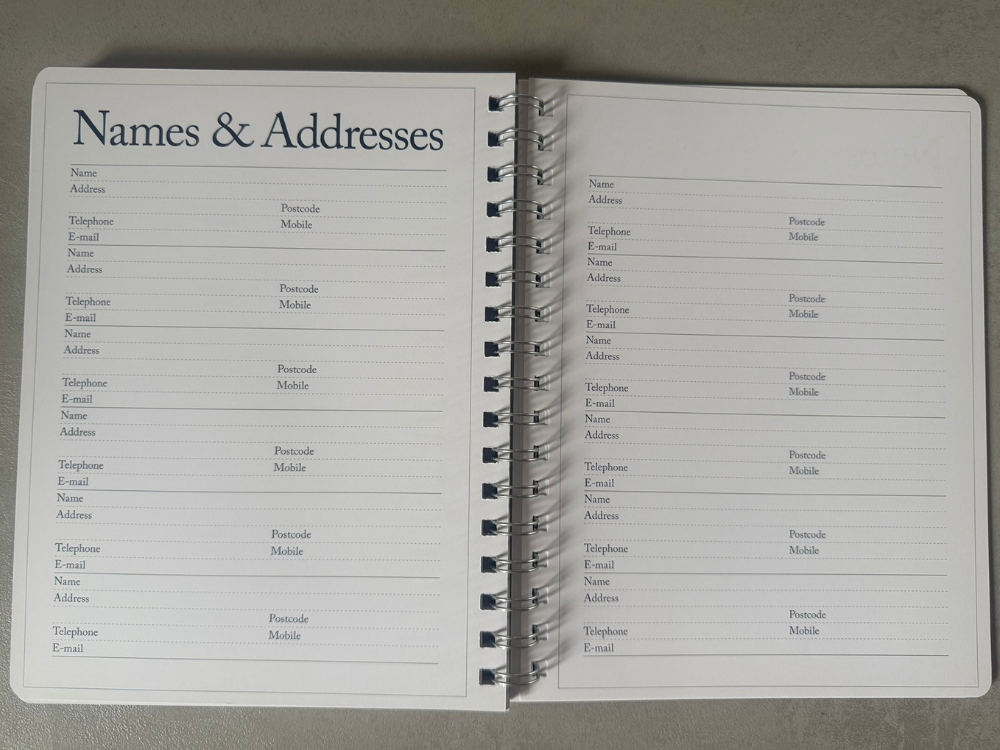 Names & Addresses
Name
Address
Postcode
Telephone Mobile
E-mail
Name
Address
Postcode
Telephone Mobile
E-mail
Name
Address
Postcode
Telephone Mobile
E-mail
Name
Address
Postcode
Telephone Mobile
E-mail
Name
Address
Postcode
Telephone Mobile
E-mail
Name
Address
Postcode
Telephone Mobile
E-mail
Name
Address
Postcode
Telephone Mobile
E-mail
Name
Address
Postcode
Telephone Mobile
E-mail
Name
Address
Postcode
Telephone Mobile
E-mail
Name
Address
Postcode
Telephone Mobile
E-mail
Name
Address
Postcode
Telephone Mobile
E-mail
Name
Address
Postcode
Telephone Mobile
E-mail